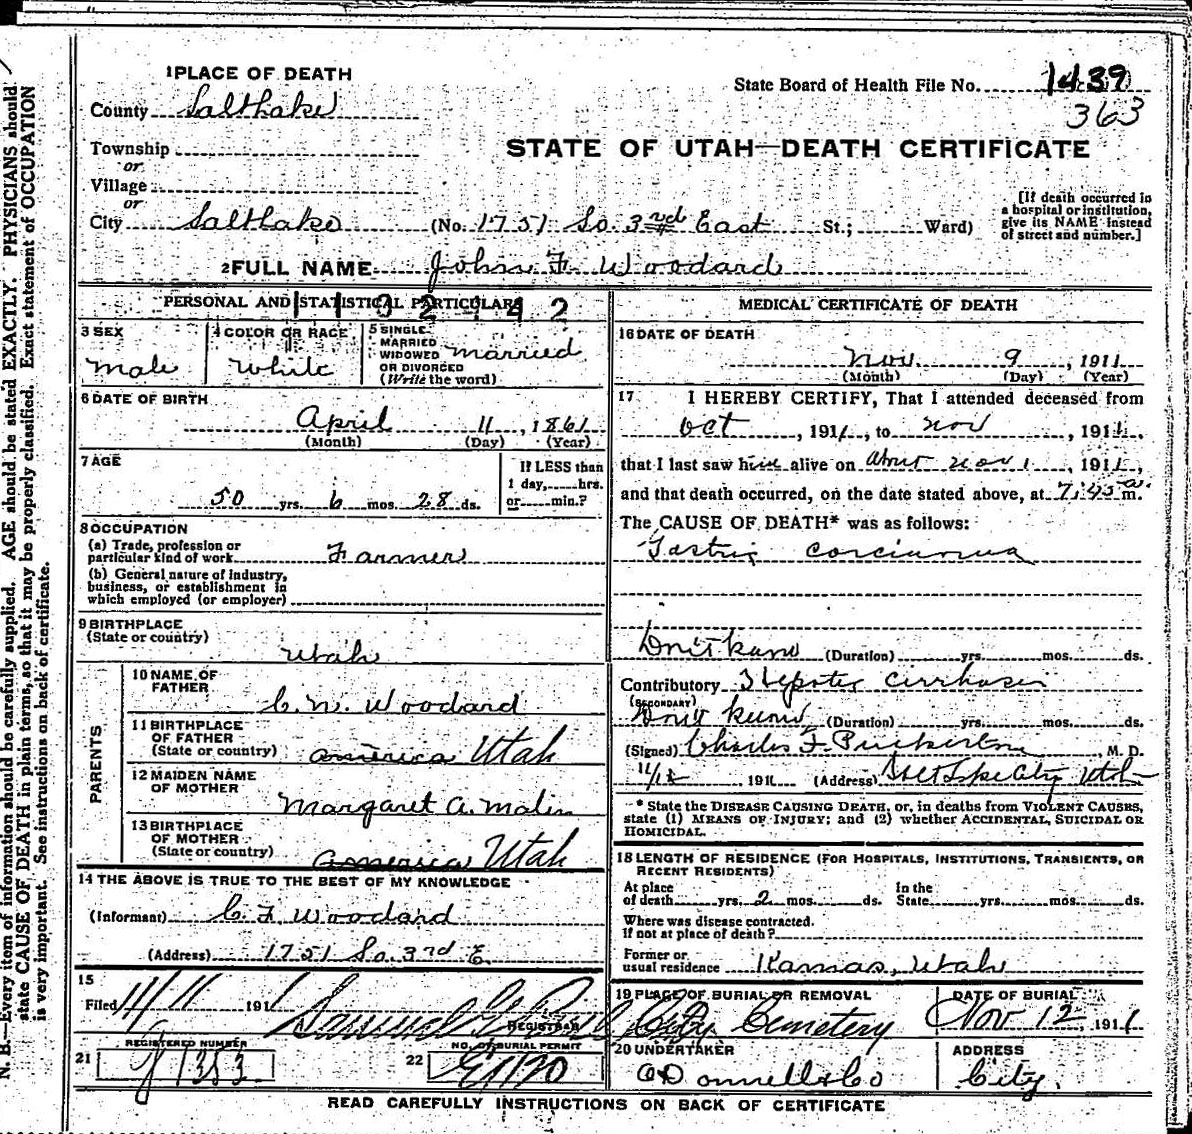 1 PLACE OF DEATH
State Board of Health File No. 1439
County Saltlake
363
Township
or
STATE OF UTAH—DEATH CERTIFICATE
Village
or
City Saltlake (No. 1751 So. 3rd East St.; Ward)
[If death occurred in a hospital or institution, give its NAME instead of street and number.]
2 FULL NAME John F. Woodard
PERSONAL AND STATISTICAL PARTICULARS
3 SEX
Male
4 COLOR OR RACE
White
5 SINGLE
MARRIED
WIDOWED
OR DIVORCED
(Write the word)
married
6 DATE OF BIRTH
April 11, 1861
(Month) (Day) (Year)
7 AGE
50 yrs. 6 mos. 28 ds.
If LESS than
1 day, hrs.
or min.?
8 OCCUPATION
(a) Trade, profession or
particular kind of work Farmer
(b) General nature of industry,
business, or establishment in
which employed (or employer)
9 BIRTHPLACE
(State or country)
Utah
PARENTS
10 NAME OF
FATHER
C. N. Woodard
11 BIRTHPLACE
OF FATHER
(State or country) america Utah
12 MAIDEN NAME
OF MOTHER
Margaret A. Malin
13 BIRTHPLACE
OF MOTHER
(State or country) America Utah
14 THE ABOVE IS TRUE TO THE BEST OF MY KNOWLEDGE
(Informant) C. F. Woodard
(Address) 1751 So. 3rd E.
15
Filed 11/11 1911 Samuel
REGISTRAR
REGISTERED NUMBER
21 J1353
NO. OF BURIAL PERMIT
22
MEDICAL CERTIFICATE OF DEATH
16 DATE OF DEATH
Nov. 9, 1911
(Month) (Day) (Year)
17 I HEREBY CERTIFY, That I attended deceased from
Oct, 1911, to nov, 1911,
that I last saw him alive on about nov 1, 1911,
and that death occurred, on the date stated above, at 7:45 a m.
The CAUSE OF DEATH* was as follows:
Gastric
(Duration) yrs. mos. ds.
Contributory Hepatic Cirrhosis
(SECONDARY)
(Duration) yrs. mos. ds.
(Signed) Charles F. Pinkerton, M. D.
11/12, 191 (Address) Salt Lake City Utah
* State the DISEASE CAUSING DEATH, or, in deaths from VIOLENT CAUSES,
state (1) MEANS OF INJURY; and (2) whether ACCIDENTAL, SUICIDAL OR
HOMICIDAL.
18 LENGTH OF RESIDENCE (FOR HOSPITALS, INSTITUTIONS, TRANSIENTS, OR
RECENT RESIDENTS)
At place
of death yrs. 2 mos. ds.
In the
State yrs. mos. ds.
Where was disease contracted.
If not at place of death?
Former or
usual residence Kamas, Utah
19 PLACE OF BURIAL OR REMOVAL
City Cemetery
DATE OF BURIAL
Nov 12, 1911
20 UNDERTAKER
O'Donnell & Co
ADDRESS
City.
READ CAREFULLY INSTRUCTIONS ON BACK OF CERTIFICATE
N. B.—Every item of information should be carefully supplied. AGE should be stated EXACTLY. PHYSICIANS should
state CAUSE OF DEATH in plain terms, so that it may be properly classified. Exact statement of OCCUPATION
is very important. See instructions on back of certificate.